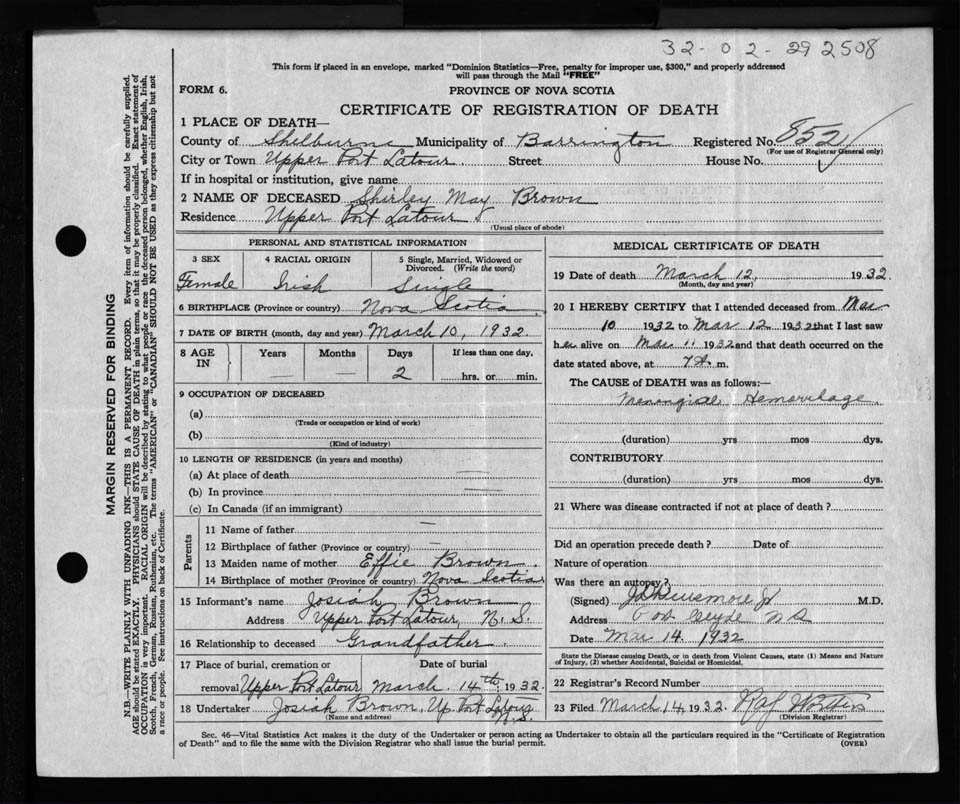 32-02-29 2508
This form if placed in an envelope, marked "Dominion Statistics—Free, penalty for improper use, $300," and properly addressed
will pass through the Mail "FREE"
FORM 6.
PROVINCE OF NOVA SCOTIA
CERTIFICATE OF REGISTRATION OF DEATH
1 PLACE OF DEATH—
County of Shelburne Municipality of Barrington Registered No. 852
(For use of Registrar General only)
City or Town Upper Port Latour Street House No.
If in hospital or institution, give name
2 NAME OF DECEASED Shirley May Brown
Residence Upper Port Latour
(Usual place of abode)
PERSONAL AND STATISTICAL INFORMATION
3 SEX 4 RACIAL ORIGIN 5 Single, Married, Widowed or
Divorced. (Write the word)
Female Irish Single
6 BIRTHPLACE (Province or country) Nova Scotia
7 DATE OF BIRTH (month, day and year) March 10, 1932
8 AGE IN Years Months Days If less than one day,
— — 2 hrs. or min.
9 OCCUPATION OF DECEASED
(a)
(Trade or occupation or kind of work)
(b)
(Kind of industry)
10 LENGTH OF RESIDENCE (in years and months)
(a) At place of death —
(b) In province —
(c) In Canada (if an immigrant)
Parents
11 Name of father —
12 Birthplace of father (Province or country) —
13 Maiden name of mother Effie Brown
14 Birthplace of mother (Province or country) Nova Scotia
15 Informant's name Josiah Brown
Address Upper Port Latour, N. S.
16 Relationship to deceased Grandfather
17 Place of burial, cremation or Date of burial
removal Upper Port Latour March 14th, 1932
18 Undertaker Josiah Brown, Up. Port Latour
N.S.
(Name and address)
MEDICAL CERTIFICATE OF DEATH
19 Date of death March 12, 1932
(Month, day and year)
20 I HEREBY CERTIFY that I attended deceased from Mar
10 1932 to Mar 12 1932 that I last saw
her alive on Mar 11 1932 and that death occurred on the
date stated above, at 7 A. m.
The CAUSE of DEATH was as follows:—
Menangial Hemorrhage
(duration) yrs mos dys.
CONTRIBUTORY
(duration) yrs mos dys.
21 Where was disease contracted if not at place of death?
Did an operation precede death? Date of
Nature of operation
Was there an autopsy?
(Signed) M.D.
Address Clyde N S
Date Mar 14 1932
State the Disease causing Death, or in death from Violent Causes, state (1) Means and Nature
of Injury, (2) whether Accidental, Suicidal or Homicidal.
22 Registrar's Record Number
23 Filed March 14, 1932
(Division Registrar)
Sec. 46—Vital Statistics Act makes it the duty of the Undertaker or person acting as Undertaker to obtain all the particulars required in the "Certificate of Registration
of Death" and to file the same with the Division Registrar who shall issue the burial permit.
(OVER)
MARGIN RESERVED FOR BINDING
N.B.—WRITE PLAINLY WITH UNFADING INK—THIS IS A PERMANENT RECORD. Every item of information should be carefully supplied.
AGE should be stated EXACTLY. PHYSICIANS should STATE CAUSE OF DEATH in plain terms, so that it may be properly classified. Exact statement of
OCCUPATION is very important. RACIAL ORIGIN will be described by stating to what people or race the deceased person belonged, whether English, Irish,
Scotch, French, German, Russian, Ruthenian, etc. The terms "AMERICAN" or "CANADIAN" SHOULD NOT BE USED as they express citizenship but not
a race or people. See instructions on back of Certificate.